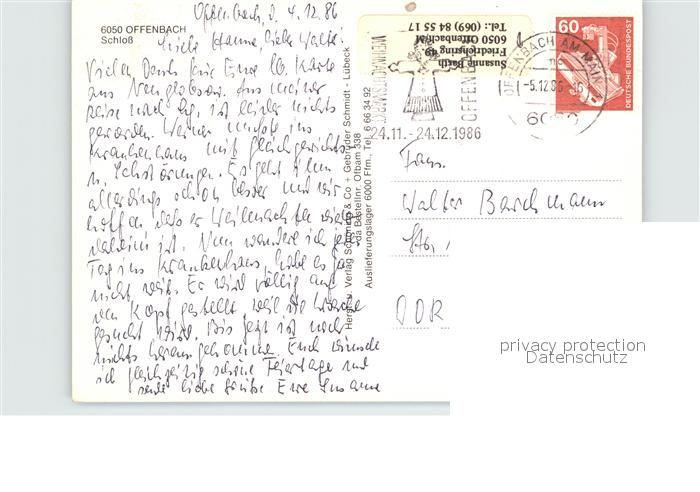 6050 OFFENBACH
Schloß
Offenbach, d. 4.12.86
Liebe Hanne, lieber Walter!
Vielen Dank für Eure lb. Karte
aus
reise nach ist leider nichts
geworden. Werner mußte ins
Krankenhaus mit Gleichgewichts-
u. Sehstörungen. Es geht ihm
allerdings schon besser und wir
hoffen, daß er Weihnachten wieder
daheim ist. Nun wandere ich jeden
Tag ins Krankenhaus, habe es
nicht weit. Er wird völlig auf
den Kopf gestellt, weil die Ursache
gesucht wird. Bis jetzt ist noch
nichts herausgekommen. Euch wünsche
ich gleichzeitig schöne Feiertage und
sende liebe Grüße Eure Susanne
Herst. u. Verlag Schöning & Co + Gebrüder Schmidt - Lübeck
Bestellnr. Ofbam 338
Auslieferungslager 6000 Ffm., Tel. 6 66 34 92
Susanne Bauth
Friedrichsring 49
6050 Offenbach/M
Tel.: (069) 84 55 17
WEIHNACHTSMARKT
OFFENBACH
24.11.-24.12.1986
OFFENBACH AM MAIN
-5.12.86
6050
60
DEUTSCHE BUNDESPOST
Fam.
Walter
DDR
privacy protection
Datenschutz